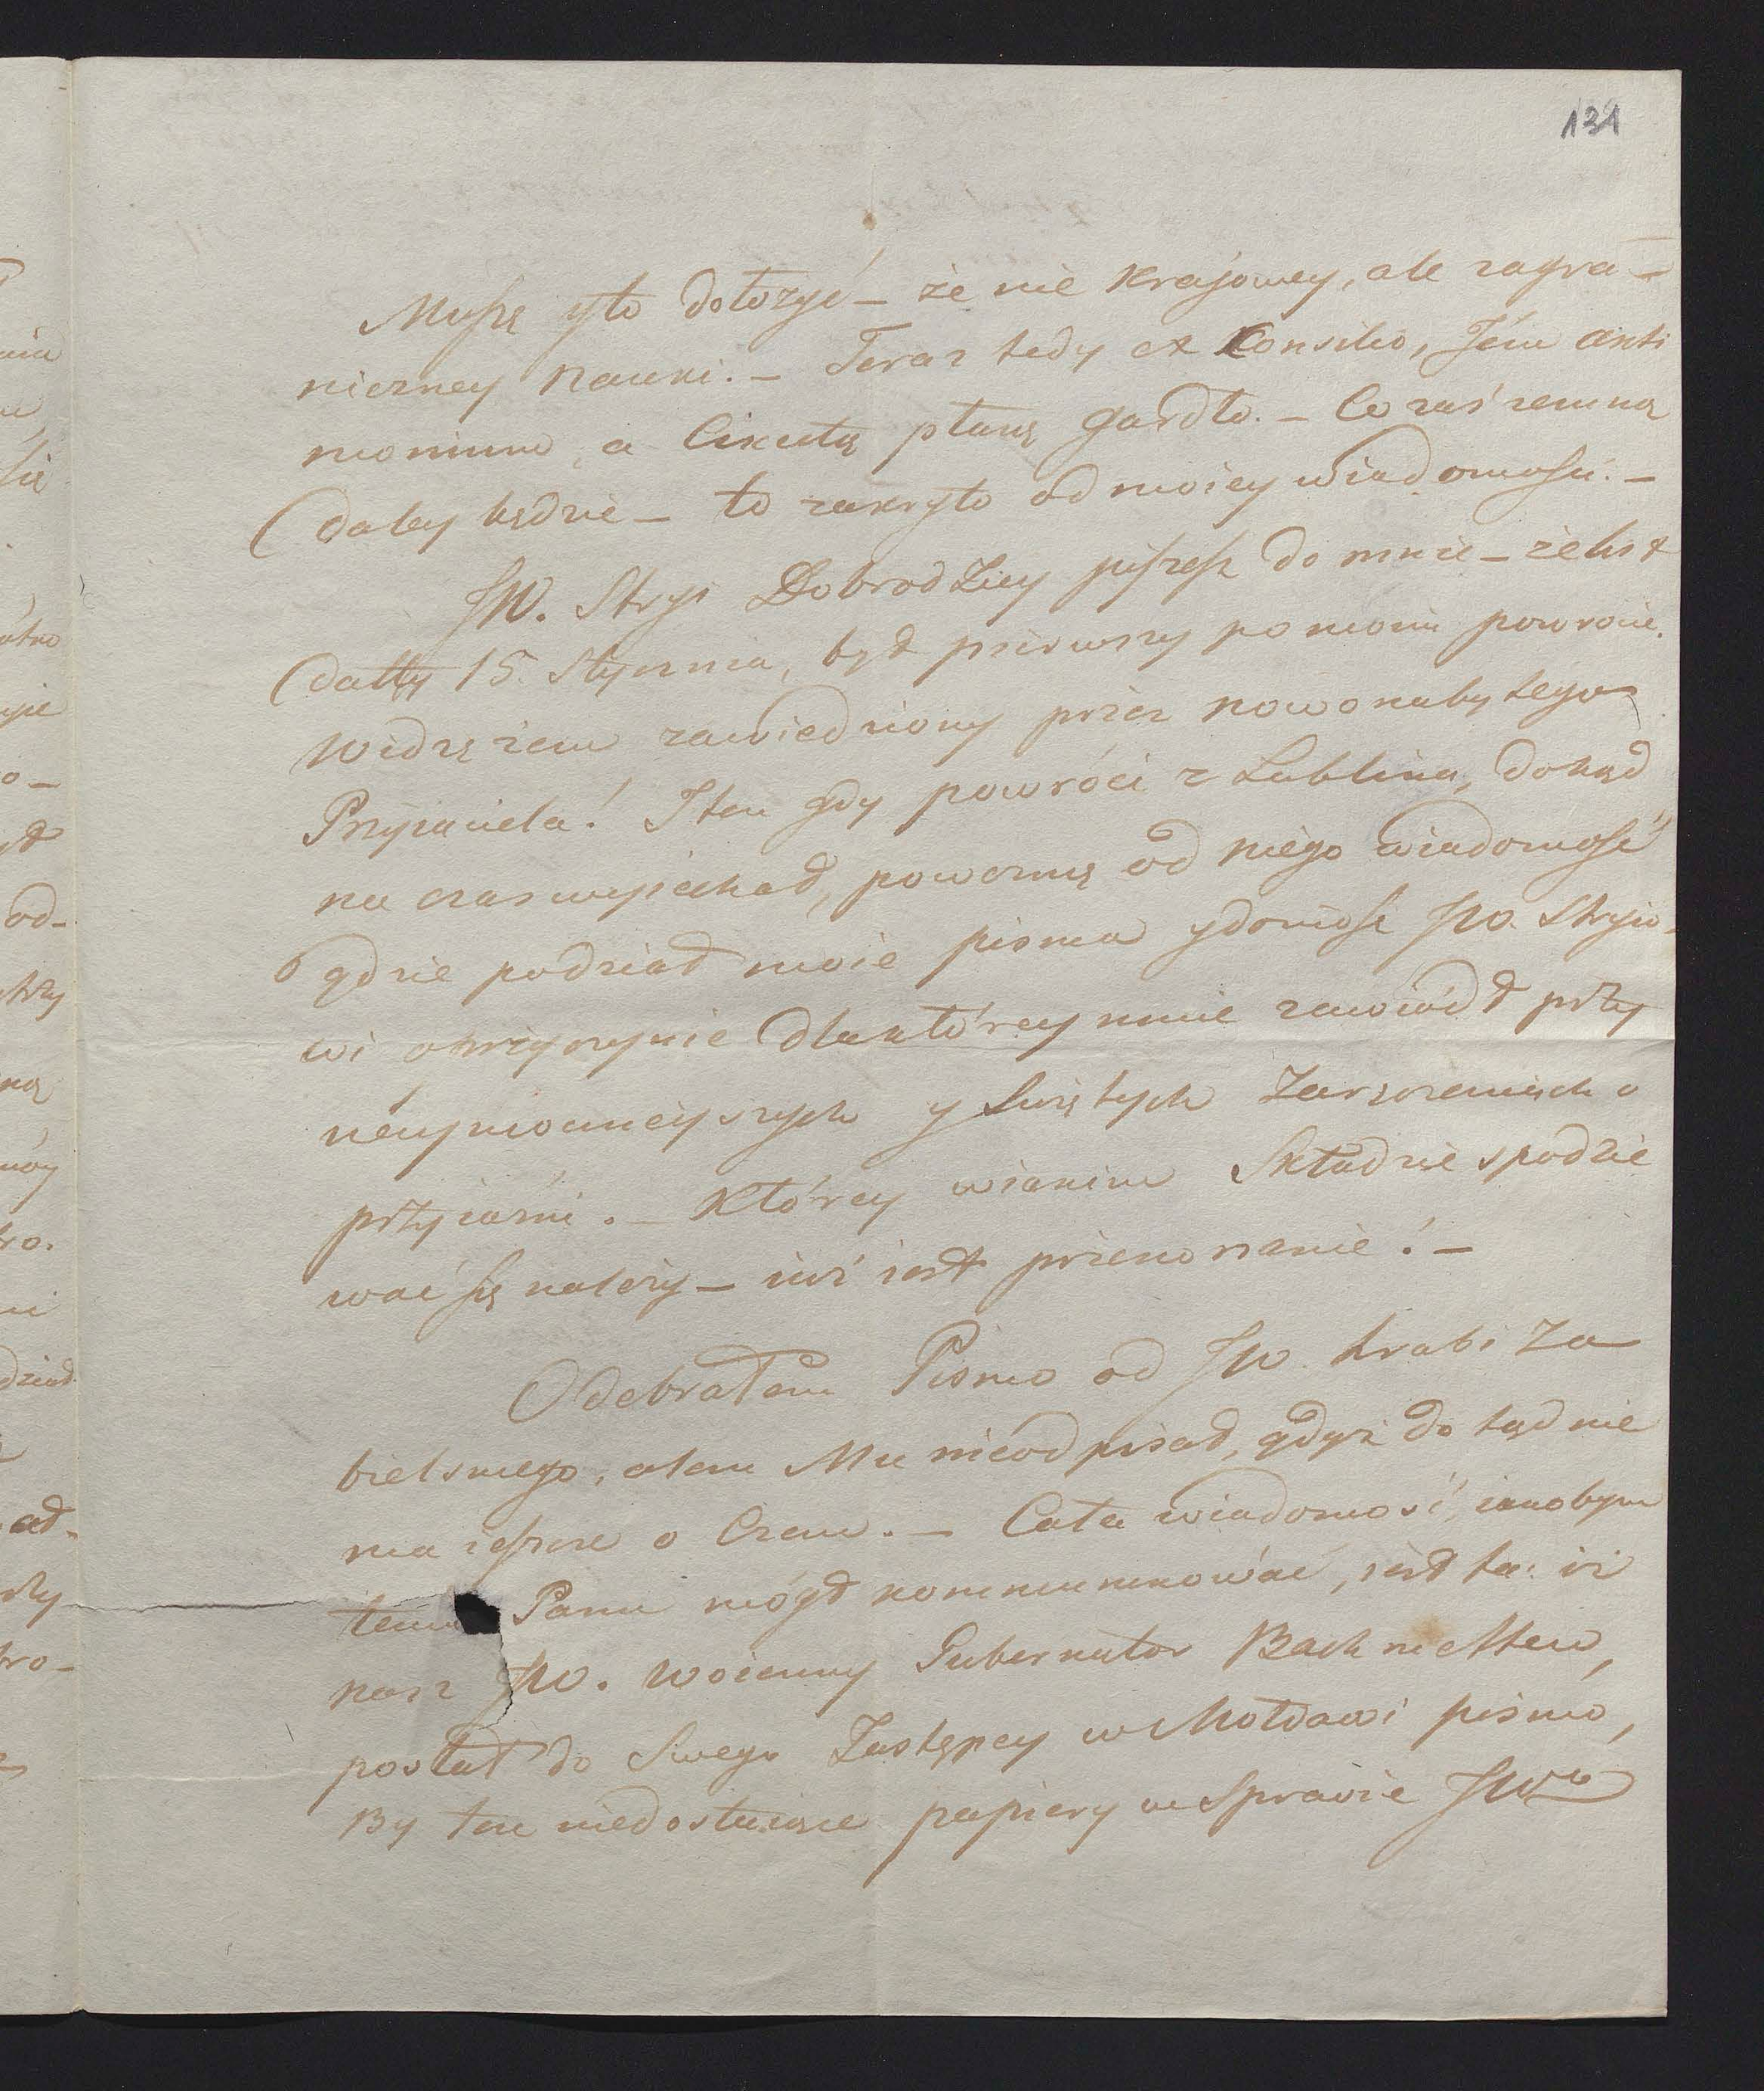 131
Muszę yto dołożyć – że nie Krajowey, ale zagra–
niczney Nauki. – Teraz tedy ex Consilio, Jém anti
monium, a Cikutą płuczę gardło. – Co zaś zemną
daley będzie – to zakryto od moiey wiadomości. –
JW. Stryi Dobrodziey piszesz do mnie – że list
datty 15. Stycznia, był pierwszy po moim powrocie.
Widzę żem zawiedziony przez nowonabytego
Przyjaciela! Iten gdy powróci z Lublina, dokąd
na czas wyjechał, powezmę od niego wiadomość
gdzie podział moie pisma ydoniosę JW. Stryio-
wi oprzyczynie dlaktórey mnie zawiódł przy
náymocnieyszych y Swiętych Zaręczeniach o
przyiaźni. – Którey wiakim Składzie spodzie
wać się należy – iuż iest przekonanie! –
Odebrałem Pismo od JW. Hrabi Za
bielskiego, alem Mu nieodpisał, gdyż do tąd nie
ma ieszcze o Czem. – Cała wiadomość, iakobym
temu Panu mógł kommunikować, iest ta: iż
nasz JW. Woienny Gubernator Bachmettew,
posłał do Swego Zastępcy w Mołdawi pismo,
By ten niedostaiące papiery w Sprawie JWo